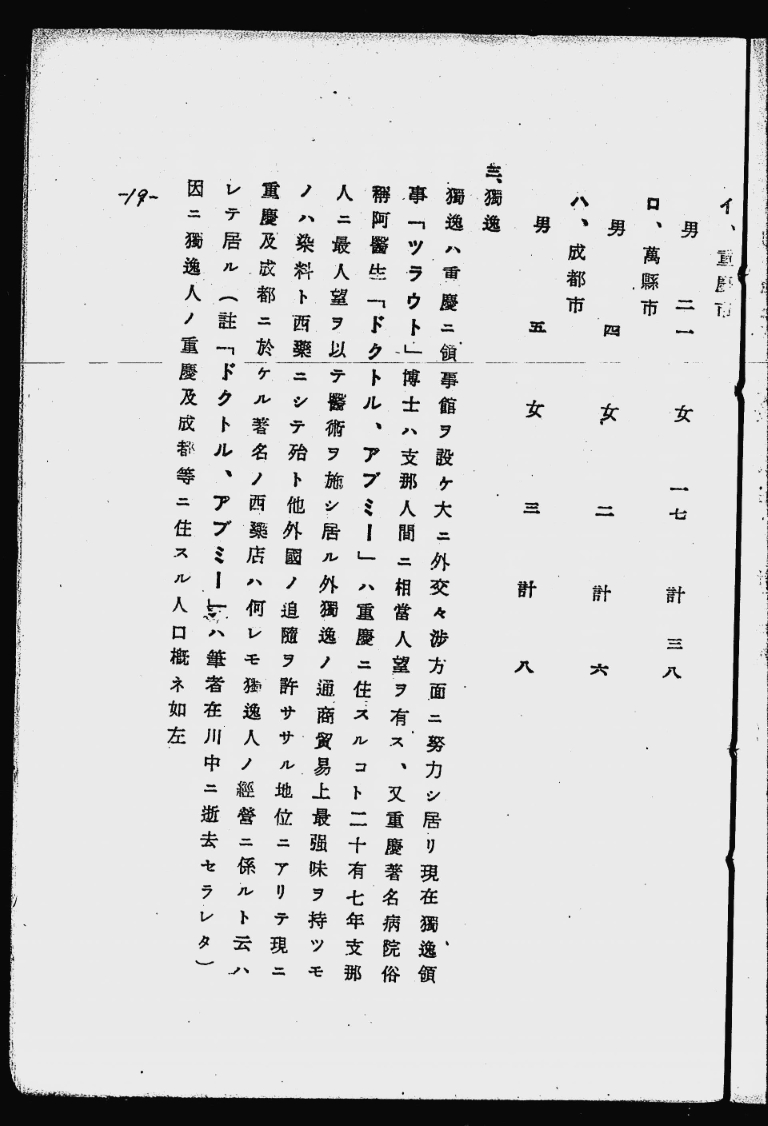 イ、重慶市
男 二一 女 一七 計 三八
ロ、萬縣市
男 四 女 二 計 六
ハ、成都市
男 五 女 三 計 八
三、獨逸
獨逸ハ重慶ニ領事館ヲ設ケ大ニ外交々涉方面ニ努力シ居リ現在獨逸領
事「ツラウト」博士ハ支那人間ニ相當人望ヲ有ス、又重慶著名病院俗
稱阿醫生「ドクトル、アブミー」ハ重慶ニ住スルコト二十有七年支那
人ニ最人望ヲ以テ醫術ヲ施シ居ル外獨逸ノ通商貿易上最强味ヲ持ツモ
ノハ染料ト西藥ニシテ殆ト他外國ノ追隨ヲ許ササル地位ニアリテ現ニ
重慶及成都ニ於ケル著名ノ西藥店ハ何レモ獨逸人ノ經營ニ係ルト云ハ
レテ居ル(註「ドクトル、アブミー」ハ筆者在川中ニ逝去セラレタ)
因ニ獨逸人ノ重慶及成都等ニ住スル人口槪ネ如左
-19-